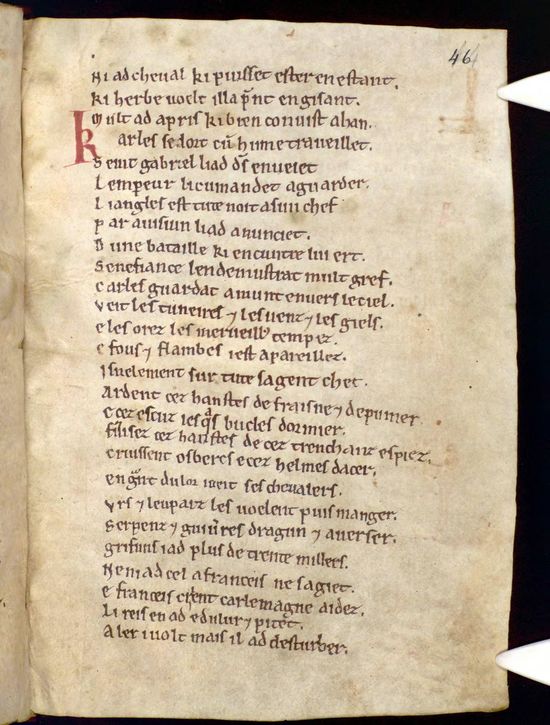 46
Ni ad cheval ki puisset ester en estant.
Ki herbe voelt il la p̄nt en gisant.
Mult ad apris ki bien conuist ahan.
Karles se dort cū hume traveillet.
Seint gabriel li ad d̄s enveiet
Lempereur li cumandet a guarder.
Li angles est tute noit a sun chef
Par avisiun li ad anunciet.
D une bataille ki encuntre lui ert.
Senefiance len demustrat mult gref.
Carles guardat amunt envers le ciel.
Veit les tuneires ⁊ les venz ⁊ les giels.
E les orez les merveillꝰ tempez.
E fous ⁊ flambes i est apareillez.
Isnelement sur tute sa gent chet.
Ardent cez hanstes de fraisne ⁊ de pumer
E cez escuz iesq̄s bucles dormier.
Fruisez cez hanstes de cez trenchanz espiez.
Cruissent osbercs e cez helmes dacer.
En grant dulor i veit ses chevalers.
Urs ⁊ leuparz les voelent puis manger.
Serpenz ⁊ guiures dragun ⁊ averser.
Grifuns i ad plus de trente millers.
Nen i ad cel a franceis ne sagiet.
E franceis crient carlemagne aidez.
Li reis en ad e dulur ⁊ pitet.
Aler i volt mais il ad desturber.